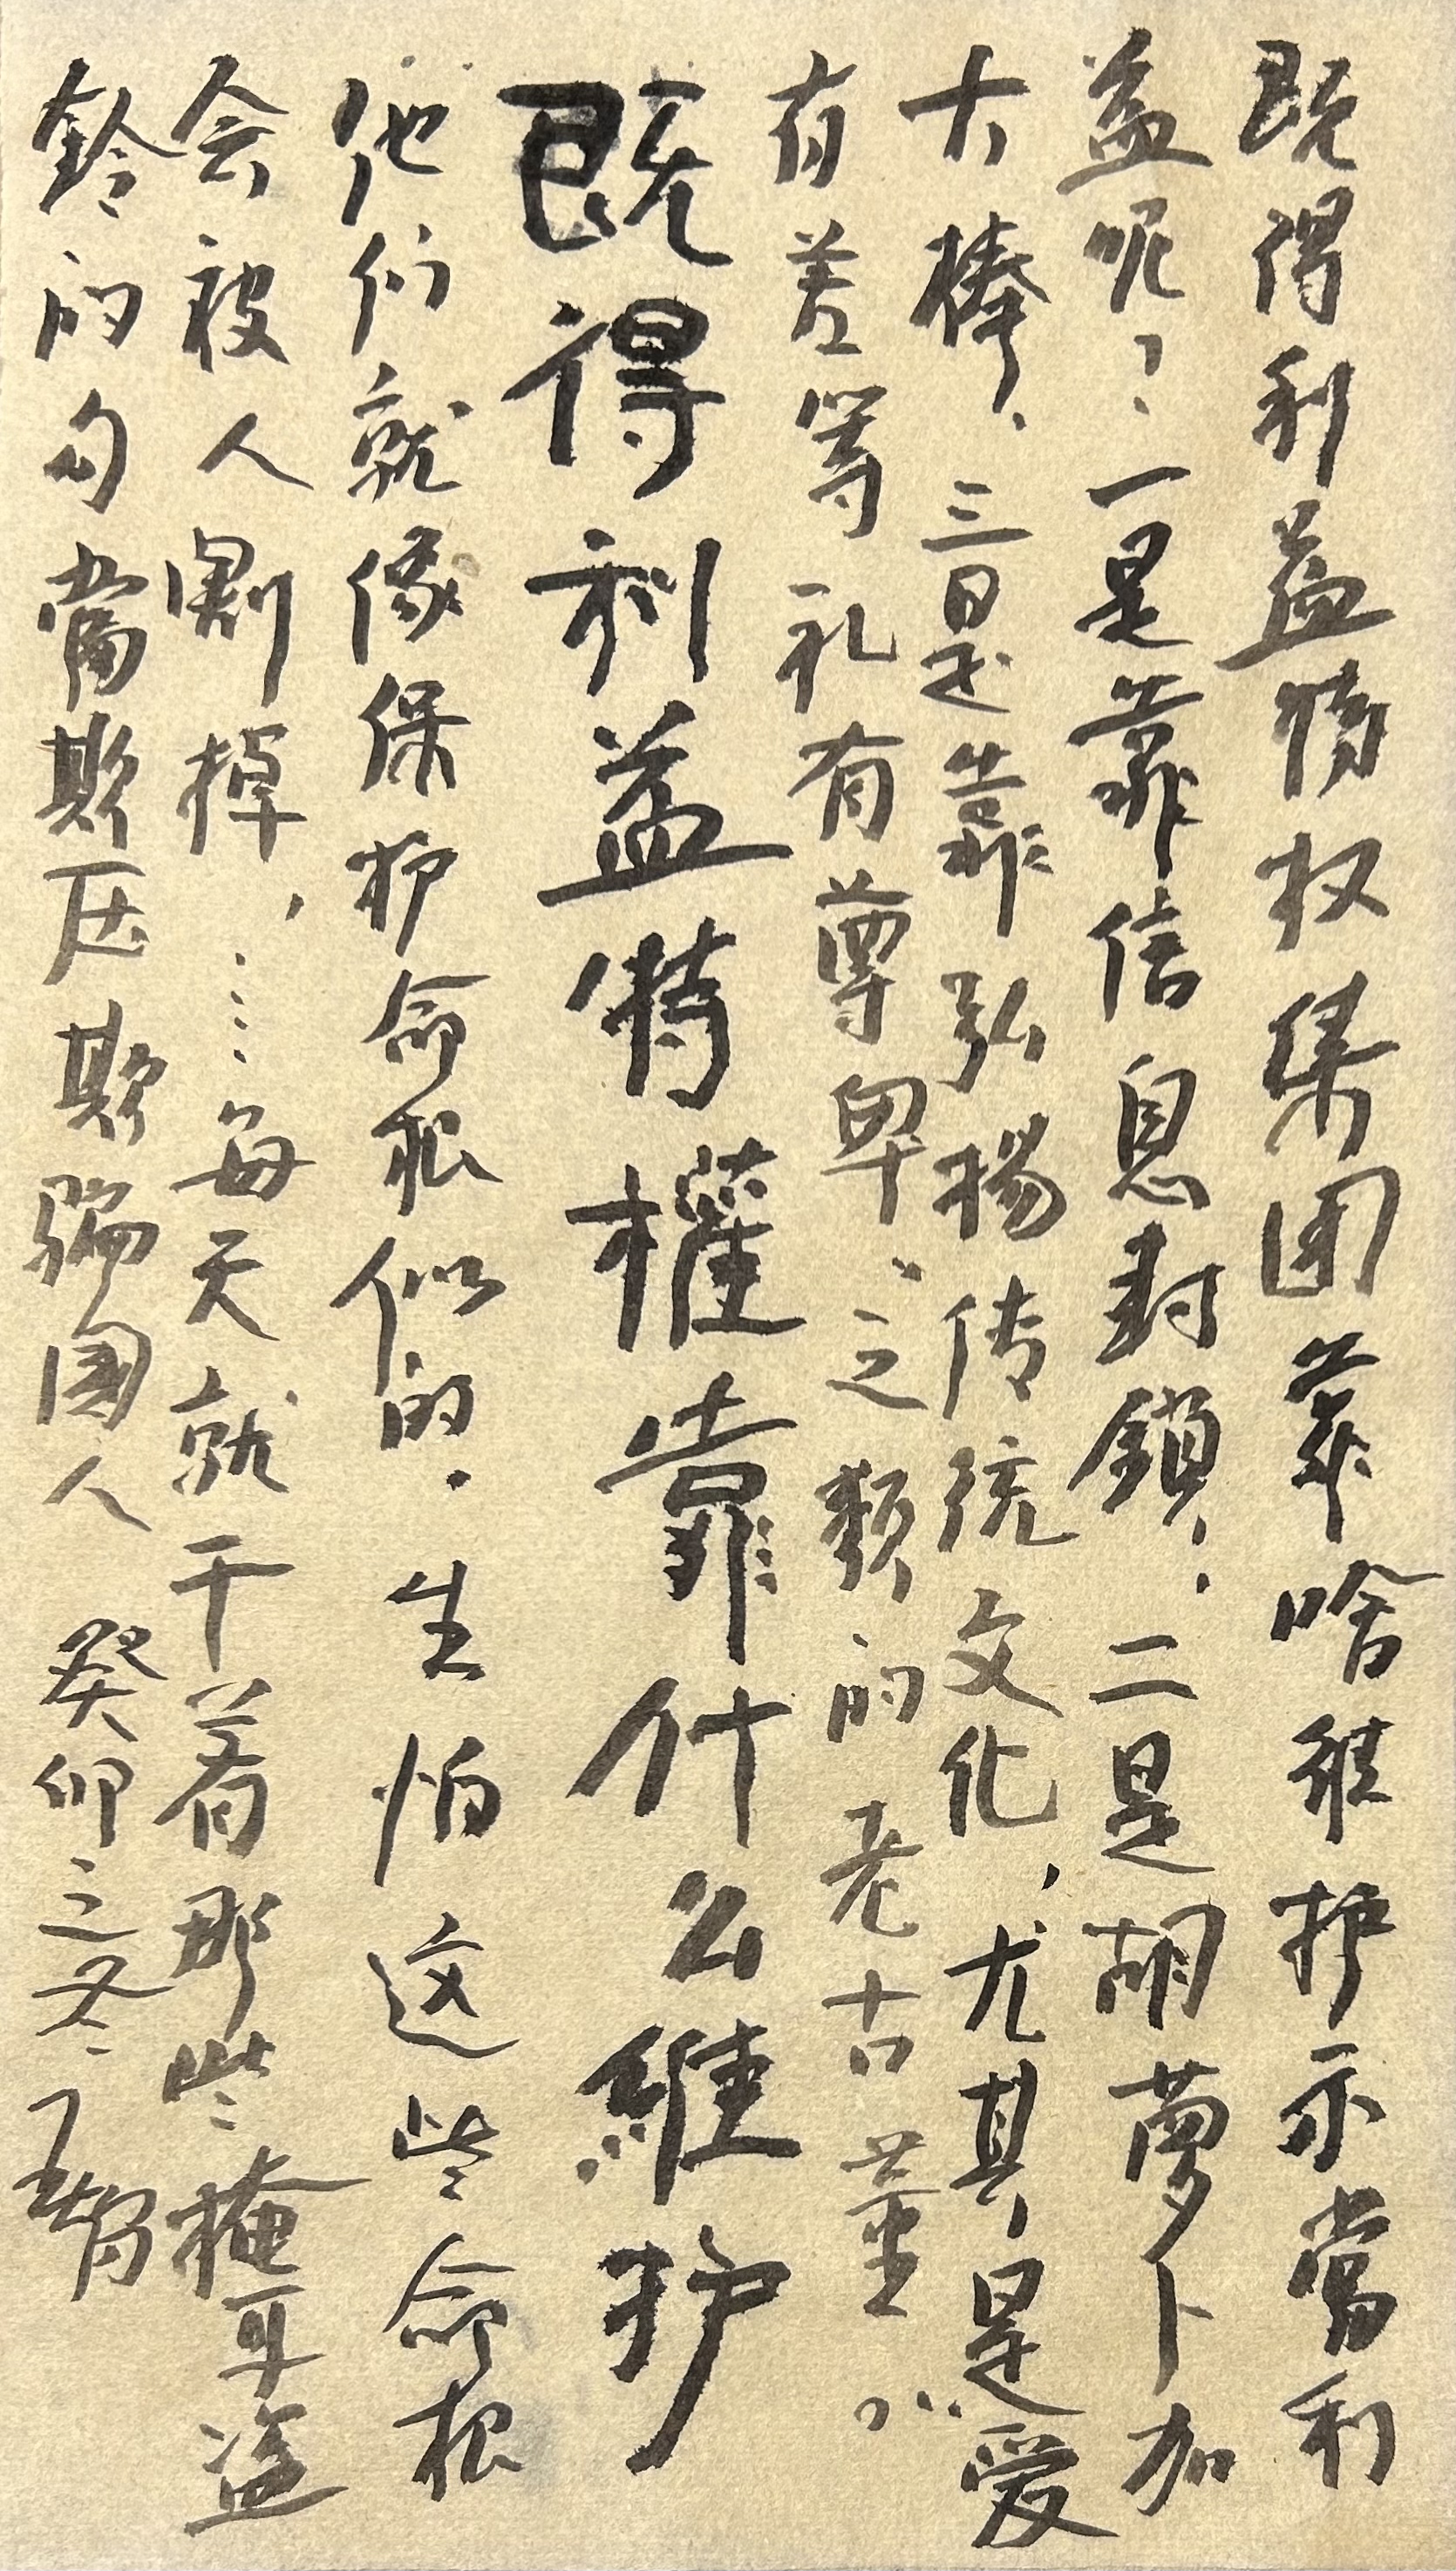 既得利益特权集团靠啥维护不当利
益呢？：一是靠信息封鎖；二是胡萝卜加
大棒，三是靠弘扬传统文化，尤其是“爱
有差等礼有尊卑”之類的老古董。
既得利益特權靠什么維护
他们就像保护命根似的．生怕这些命根
会被人割掉，……每天就干着那些掩耳盗
鈴的勾當欺压欺骗國人 癸卯之冬